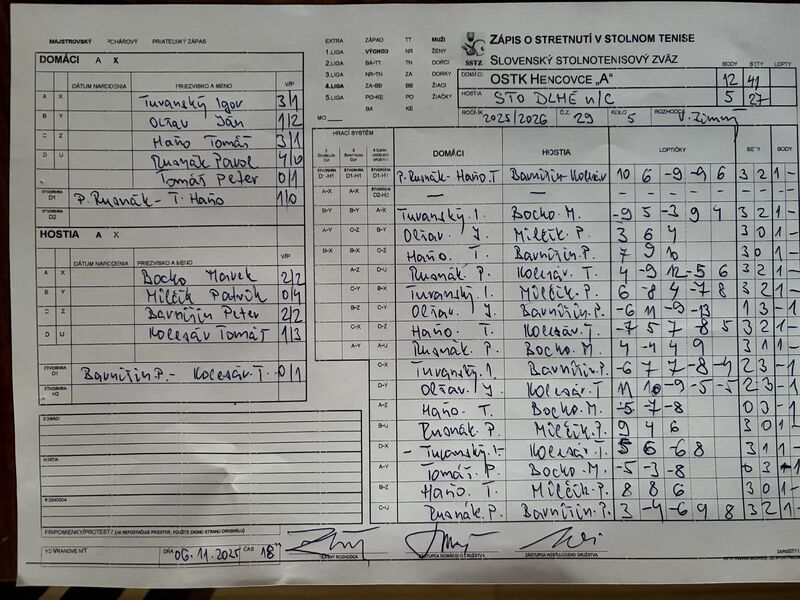 MAJSTROVSKÝ POHÁROVÝ PRIATEĽSKÝ ZÁPAS
DOMÁCI A X
DÁTUM NARODENIA PRIEZVISKO A MENO V/P
A X Turanský Igor 3/1
B Y Oľšav Ján 1/2
C Z Haňo Tomáš 3/1
D U Rusnák Pavol 4/0
Tomáš Peter 0/1
ŠTVORHRA D1 P. Rusnák - T. Haňo 1/0
D2
HOSTIA A X
DÁTUM NARODENIA PRIEZVISKO A MENO V/P
A X Bocko Marek 2/2
B Y Milčík Patrik 0/4
C Z Bavnišin Peter 2/2
D U Kolesár Tomáš 1/3
ŠTVORHRA D1 Bavnišin P. - Kolesár. T. 0/1
H2
DOMÁCI
HOSTIA
ROZHODCA
PRIPOMIENKY/PROTEST/ (AK NEPOSTAČUJE PRIESTOR, POUŽITE ZADNÚ STRANU ORIGINÁLU)
VO VRANOVE N/T DŇA 06.11.2025 ČAS 18
HLAVNÝ ROZHODCA ZÁSTUPCA DOMÁCEHO DRUŽSTVA ZÁSTUPCA HOSŤUJÚCEHO DRUŽSTVA
EXTRA ZÁPAD TT MUŽI
1.LIGA VÝCHOD NR ŽENY
2.LIGA BA-TT TN DORCI
3.LIGA NR-TN ZA DORKY
4.LIGA ZA-BB BB ŽIACI
5.LIGA PO-KE PO ŽIAČKY
MO BA KE
SSTZ
ZÁPIS O STRETNUTÍ V STOLNOM TENISE
SLOVENSKÝ STOLNOTENISOVÝ ZVÄZ BODY SETY LOPTY
DOMÁCI OSTK HENCOVCE „A" 12 41
HOSTIA STO DLHÉ n/C 5 27
ROČNÍK 2025/2026 Č.Z. 29 KOLO 5 ROZHODCA J. Zimný
HRACÍ SYSTÉM
DOMÁCI HOSTIA LOPTIČKY SETY BODY
ŠTVORHRA D1-H1 P. Rusnák - Haňo. T Bavnišin - Kolesár 10 6 -9 -9 6 3 2 1 -
A-X ŠTVORHRA D2-H2 — — - - - - - - - - -
B-Y B-Y A-X Turanský. I. Bocko M. -9 5 -3 9 4 3 2 1 -
A-Y C-Z B-Y Oľšav J. Milčík. P. 3 6 4 3 0 1 -
B-X B-X C-Z Haňo. T. Bavnišin. P. 7 9 10 3 0 1 -
A-Z D-U Rusnák P. Kolesár. T. 4 -9 12 -5 6 3 2 1 -
C-Y B-X Turanský. I. Milčík. P. 6 -8 4 -7 8 3 2 1 -
B-Z C-Y Oľšav J. Bavnišin P. -6 11 -9 -13 1 3 - 1
C-X D-Z Haňo. T. Kolesár. T. -7 5 7 -8 5 3 2 1 -
A-Y A-U Rusnák. P. Bocko. M. 4 -4 4 9 3 1 1 -
C-X Turanský. I. Bavnišin. P. -6 7 7 -8 -4 2 3 - 1
D-Y Oľšav. J. Kolesár. T 11 10 -9 -5 -5 2 3 - 1
A-Z Haňo. T. Bocko. M. -5 -7 -8 0 3 - 1
B-U Rusnák. P. Milčík. P. 9 4 6 3 0 1 -
D-X - Turanský. I - Kolesár. T. 5 6 -6 8 3 1 1 -
A-Y Tomáš. P. Bocko. M. -5 -3 -8 0 3 - 1
B-Z Haňo. T. Milčík. P. 8 8 6 3 0 1 -
C-U Rusnák. P. Bavnišin. P. 3 -4 -6 9 8 3 2 1 -